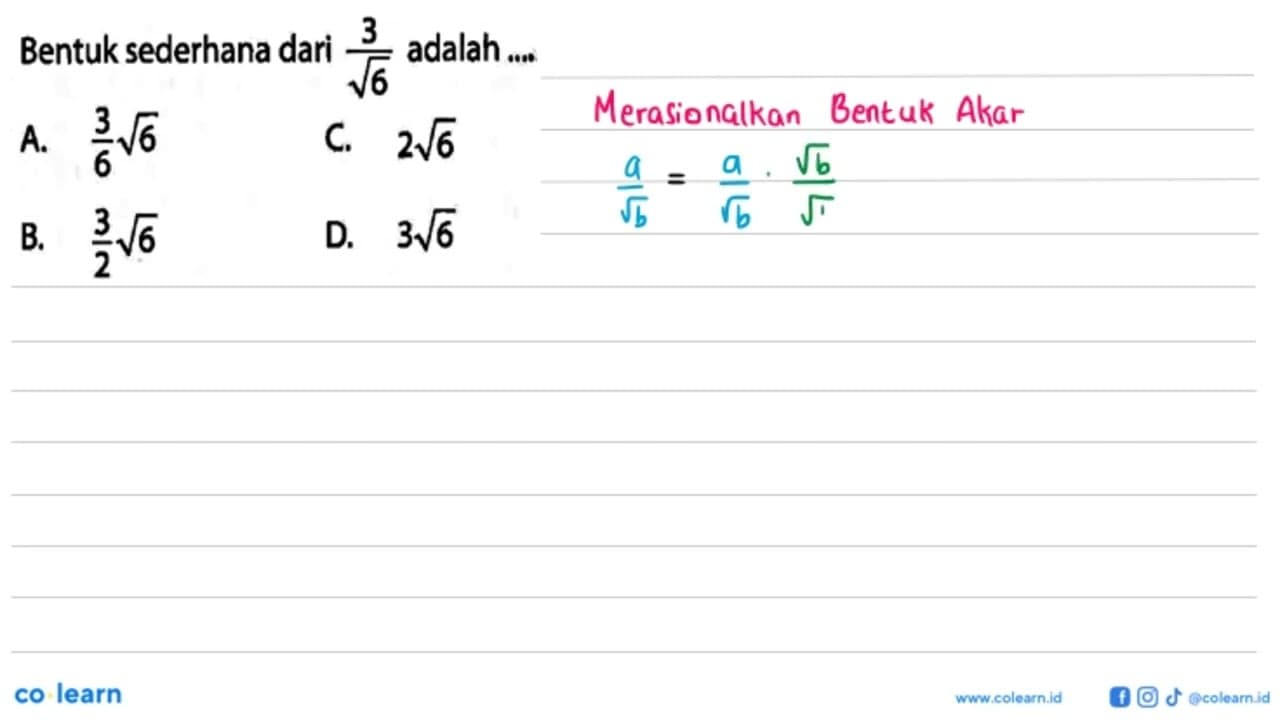 Bentuk sederhana dari 3/√6 adalah ....
A. 3/6 √6
C. 2√6
B. 3/2 √6
D. 3√6
Merasionalkan Bentuk Akar
a/√b = a/√b . √b/√
co learn
www.colearn.id
@colearn.id